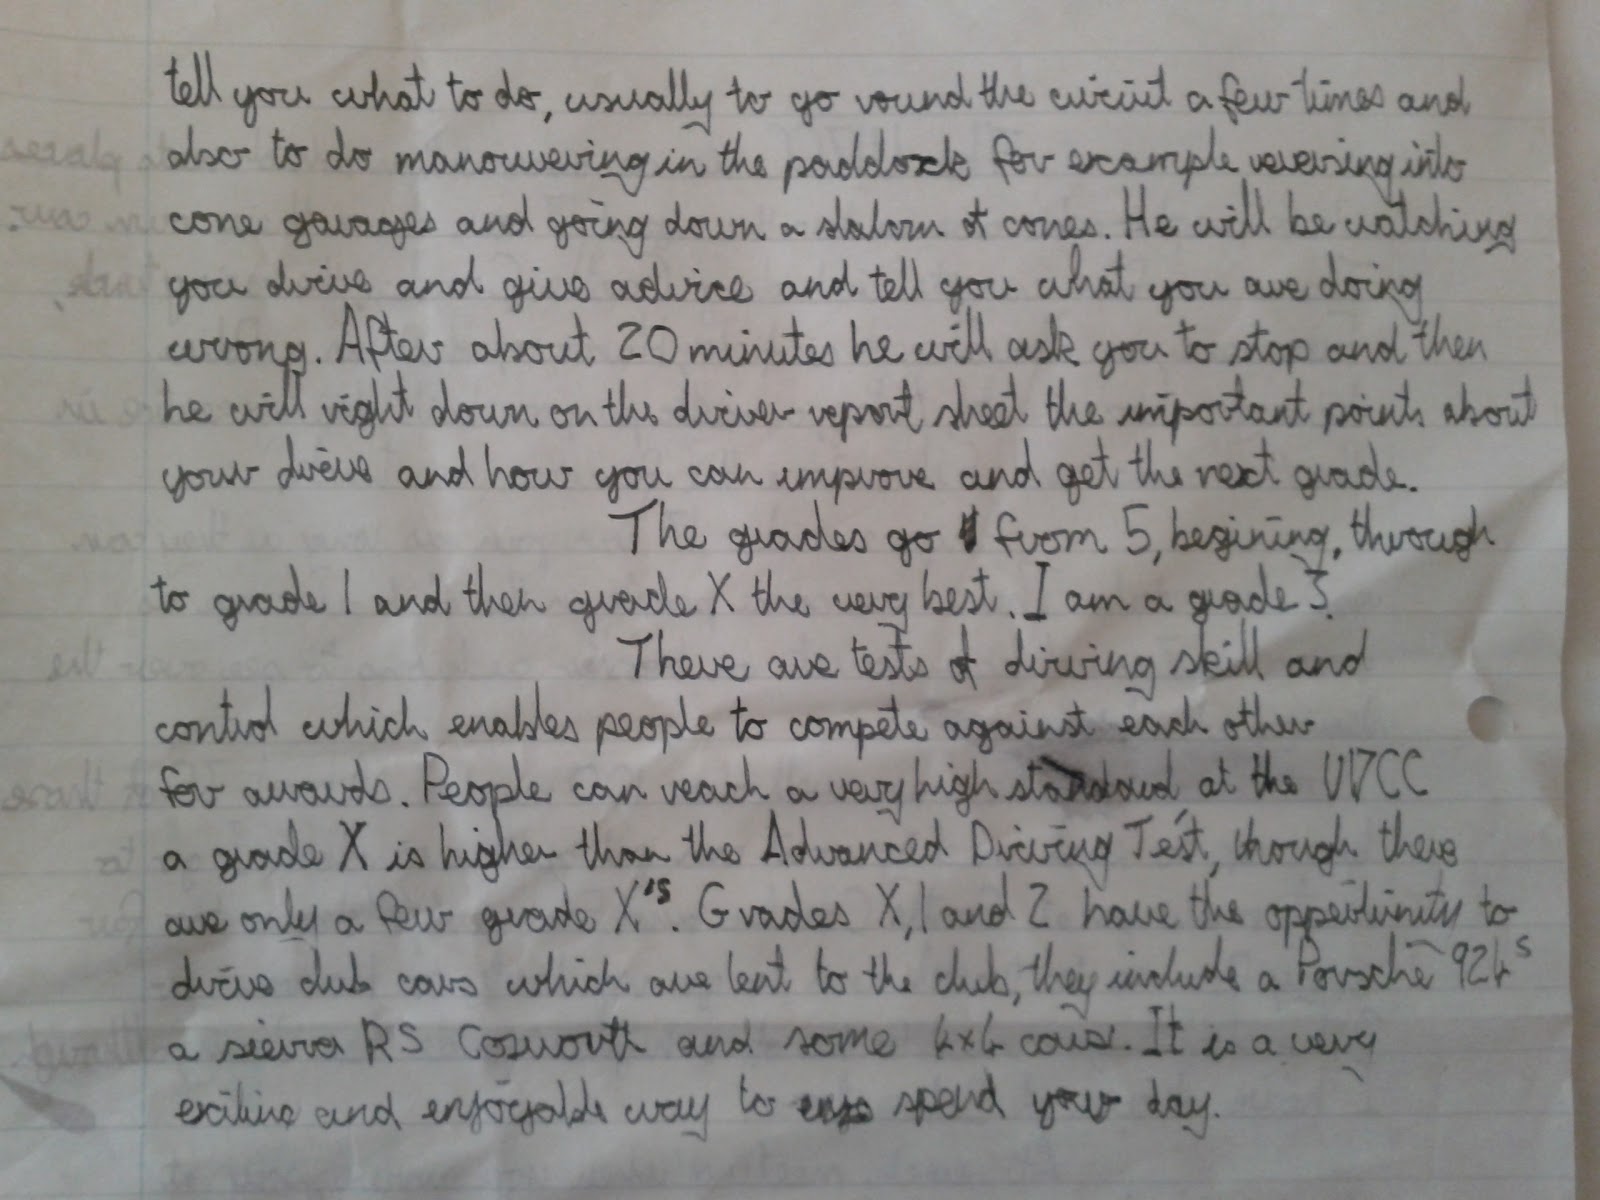 tell you what to do, usually to go round the circuit a few times and
also to do manouvering in the paddock for example reversing into
cone garages and going down a slalom of cones. He will be watching
you drive and give advice and tell you what you are doing
wrong. After about 20 minutes he will ask you to stop and then
he will right down on the driver report sheet the important points about
your drive and how you can improve and get the next grade.
The grades go from 5, begining, through
to grade 1 and then grade X the very best. I am a grade 3.
There are tests of driving skill and
control which enables people to compete against each other
for awards. People can reach a very high standard at the U17CC
a grade X is higher than the Advanced Driving Test, though there
are only a few grade X's. Grades X, 1 and 2 have the oppertunity to
drive club cars which are lent to the club, they include a Porsche 924s
a sierra RS Cosworth and some 4x4 cars. It is a very
and enjoyable way to spend your day.